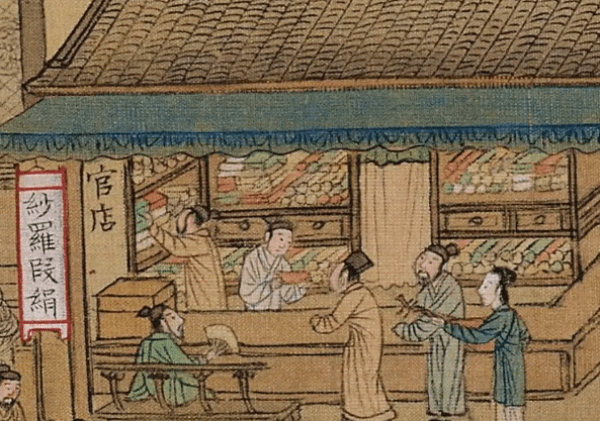 官店
紗羅段絹